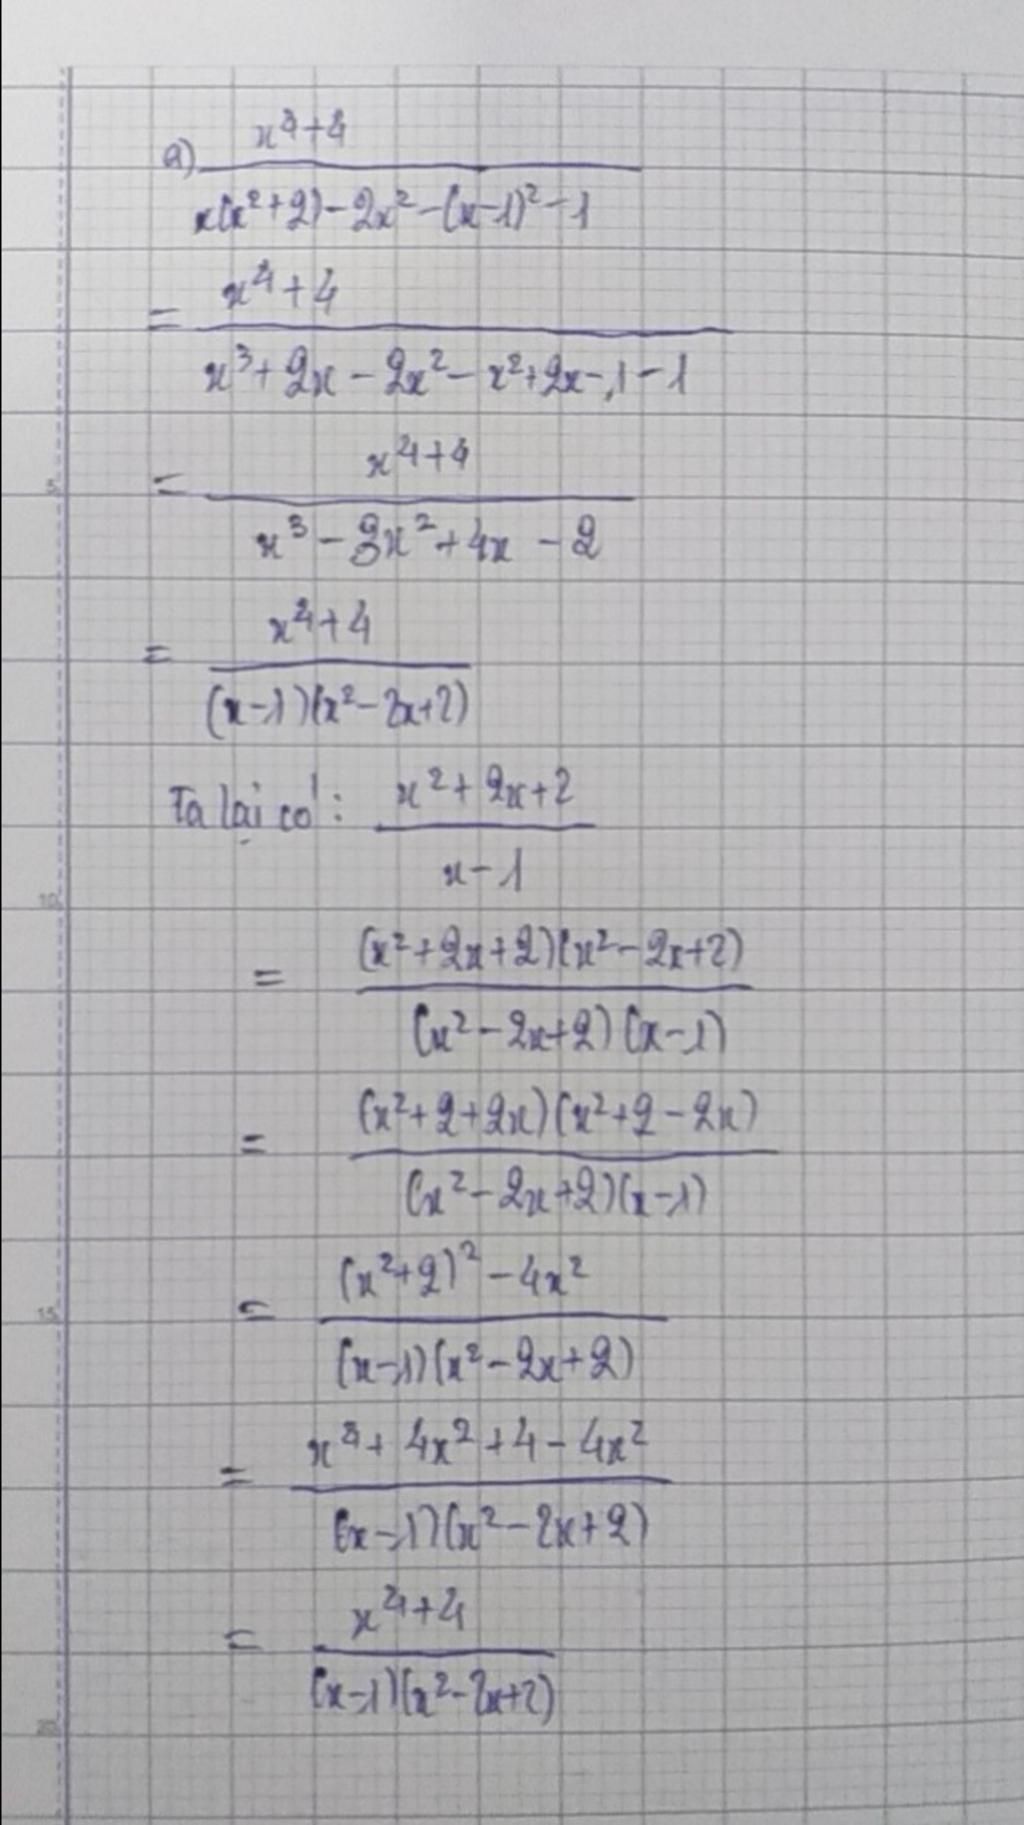 a) \frac{x^4+4}{x(x^2+2)-2x^2-(x-1)^2-1}
= \frac{x^4+4}{x^3+2x-2x^2-x^2+2x-1-1}
= \frac{x^4+4}{x^3-3x^2+4x-2}
= \frac{x^4+4}{(x-1)(x^2-2x+2)}
Ta lại có: \frac{x^2+2x+2}{x-1}
= \frac{(x^2+2x+2)(x^2-2x+2)}{(x^2-2x+2)(x-1)}
= \frac{(x^2+2+2x)(x^2+2-2x)}{(x^2-2x+2)(x-1)}
= \frac{(x^2+2)^2-4x^2}{(x-1)(x^2-2x+2)}
= \frac{x^4+4x^2+4-4x^2}{(x-1)(x^2-2x+2)}
= \frac{x^4+4}{(x-1)(x^2-2x+2)}